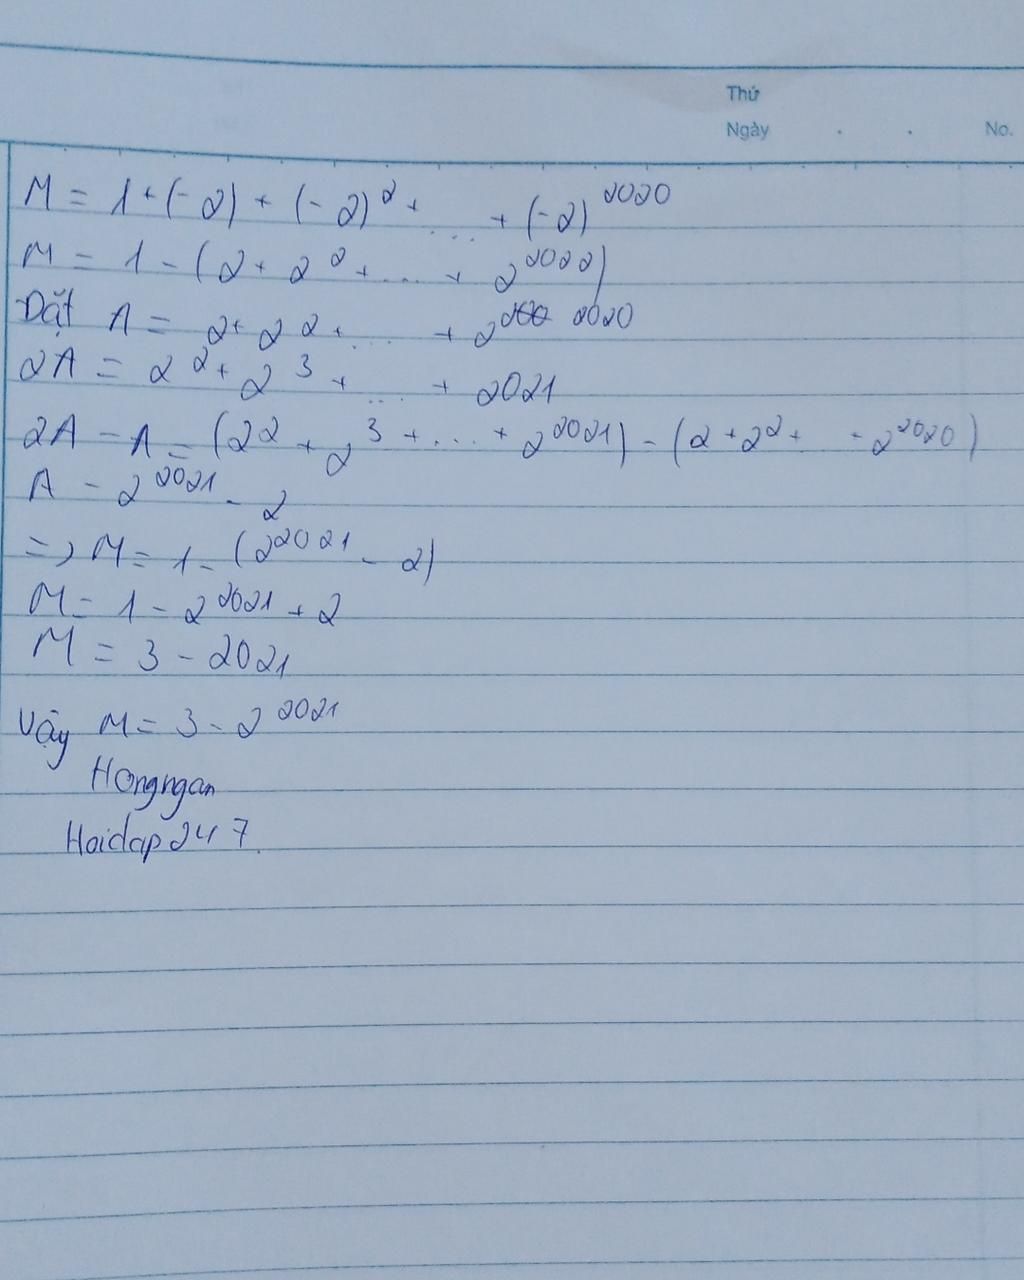 Thứ
Ngày . . No.
M = 1 + (-2) + (-2)² + .... + (-2)²⁰²⁰
M = 1 - (2 + 2² + .... + 2²⁰²⁰)
Đặt A = 2 + 2² + .... + 2²⁰²⁰
2A = 2² + 2³ + ... + 2021
2A - A = (2² + 2³ + ... + 2²⁰²¹) - (2 + 2² + ... - 2²⁰²⁰)
A - 2²⁰²¹ - 2
=> M = 1 - (2²⁰²¹ - 2)
M = 1 - 2²⁰²¹ + 2
M = 3 - 2021
Vậy M = 3 - 2²⁰²¹
Hongngan
Hoidap247.